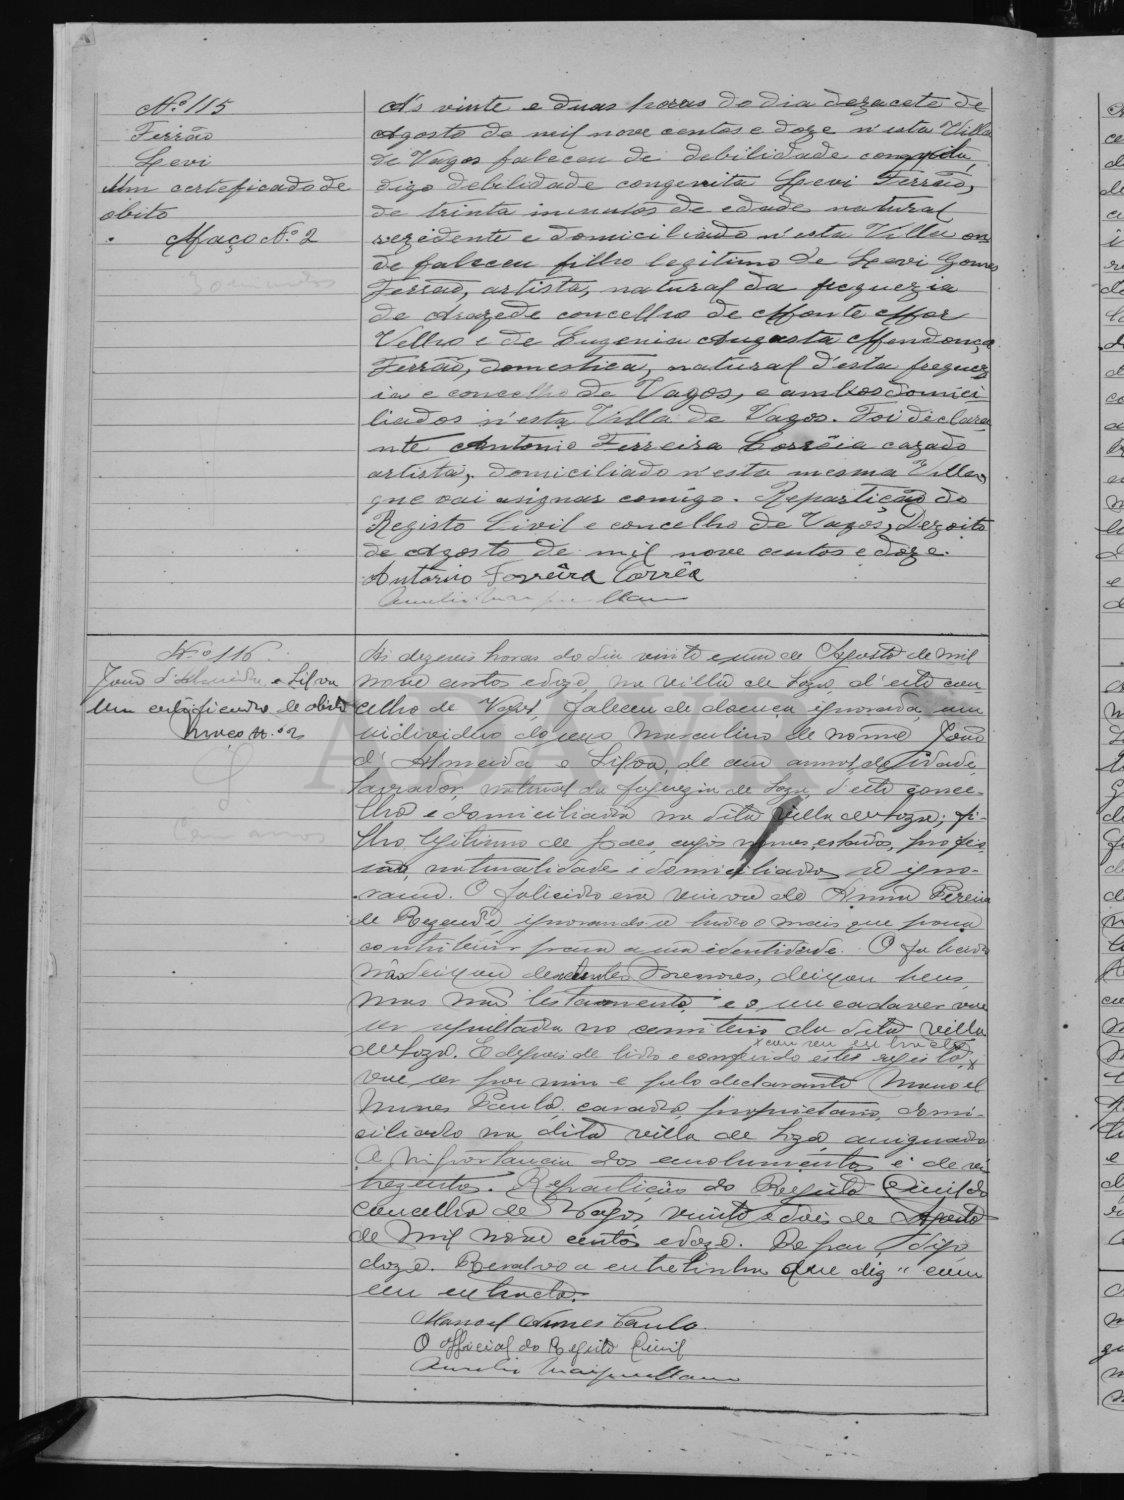 Nº 115
Ferrão
Levi
Um certeficado de
obito
Maço Nº 2
30 minutos
Ás vinte e duas horas do dia dezacete de
Agosto de mil nove centos e doze n'esta Villa
de Vagos faleceu de debilidade
digo debilidade congenita Levi Ferrão,
de trinta minutos de edade natural
rezidente e domiciliado n'esta Villa on
de faleceu filho legitimo de Levi Gomes
Ferrão, artista, natural da freguezia
de Arazede concelho de Monte Mor
Velho e de Eugenia Augusta Mendonça
Ferrão, domestica, natural d'esta freguez
ia e concelho de Vagos, e ambos domici
liados n'esta Villa de Vagos. Foi declara
nte Antonio Ferreira Corrêia cazado
artista, domiciliado n'esta mesma Villa
que vai asignar comigo. Repartição do
Registo Civil e concelho de Vagos, Dezoito
de Agosto de mil nove centos e doze.
António Ferreira Corrêa
Nº 116
João d'Almeida e Silva
Um certificado de obito
Maço n.º 2
Cem annos
Ás dezeseis horas do dia vinte e um de Agosto de mil
nove centos e doze, na villa de Soza, d'este con-
celho de Vagos, faleceu de doença ignorada, um
individuo do sexo masculino de nome João
d'Almeida e Silva, de cem annos de idade,
lavrador, natural da freguezia de Soza, d'este conce-
lho e domiciliado na dita villa de Soza; fi-
lho legitimo de paes, cujos nomes, estados, profis-
são, naturalidade e domicilios se igno-
ram. O falecido era viuvo de Anna Pereira
de Rezende, ignorando-se tudo o mais que possa
contribuir para a sua identidade. O falecido
não deixou descendentes menores, deixou bens,
mas não testamento, e o seu cadaver vae
ser sepultado no cemiterio da dita villa
x com seu extracto
de Soza. E depois de lido e conferido este registo, x
vae ser por mim e pelo declarante Manoel
Nunes Paulo, casado, proprietario, domi-
ciliado na dita villa de Soza, assignado
A importancia dos emolumentos é de
trezentos. Repartição do Registo Civil do
concelho de Vagos, vinte e dois de Agosto
de mil nove centos e doze. digo
doze. Resalvo a entrelinha que diz "com
seu extracto.
Manoel Nunes Paulo
O official do Registo Civil
ADAVR